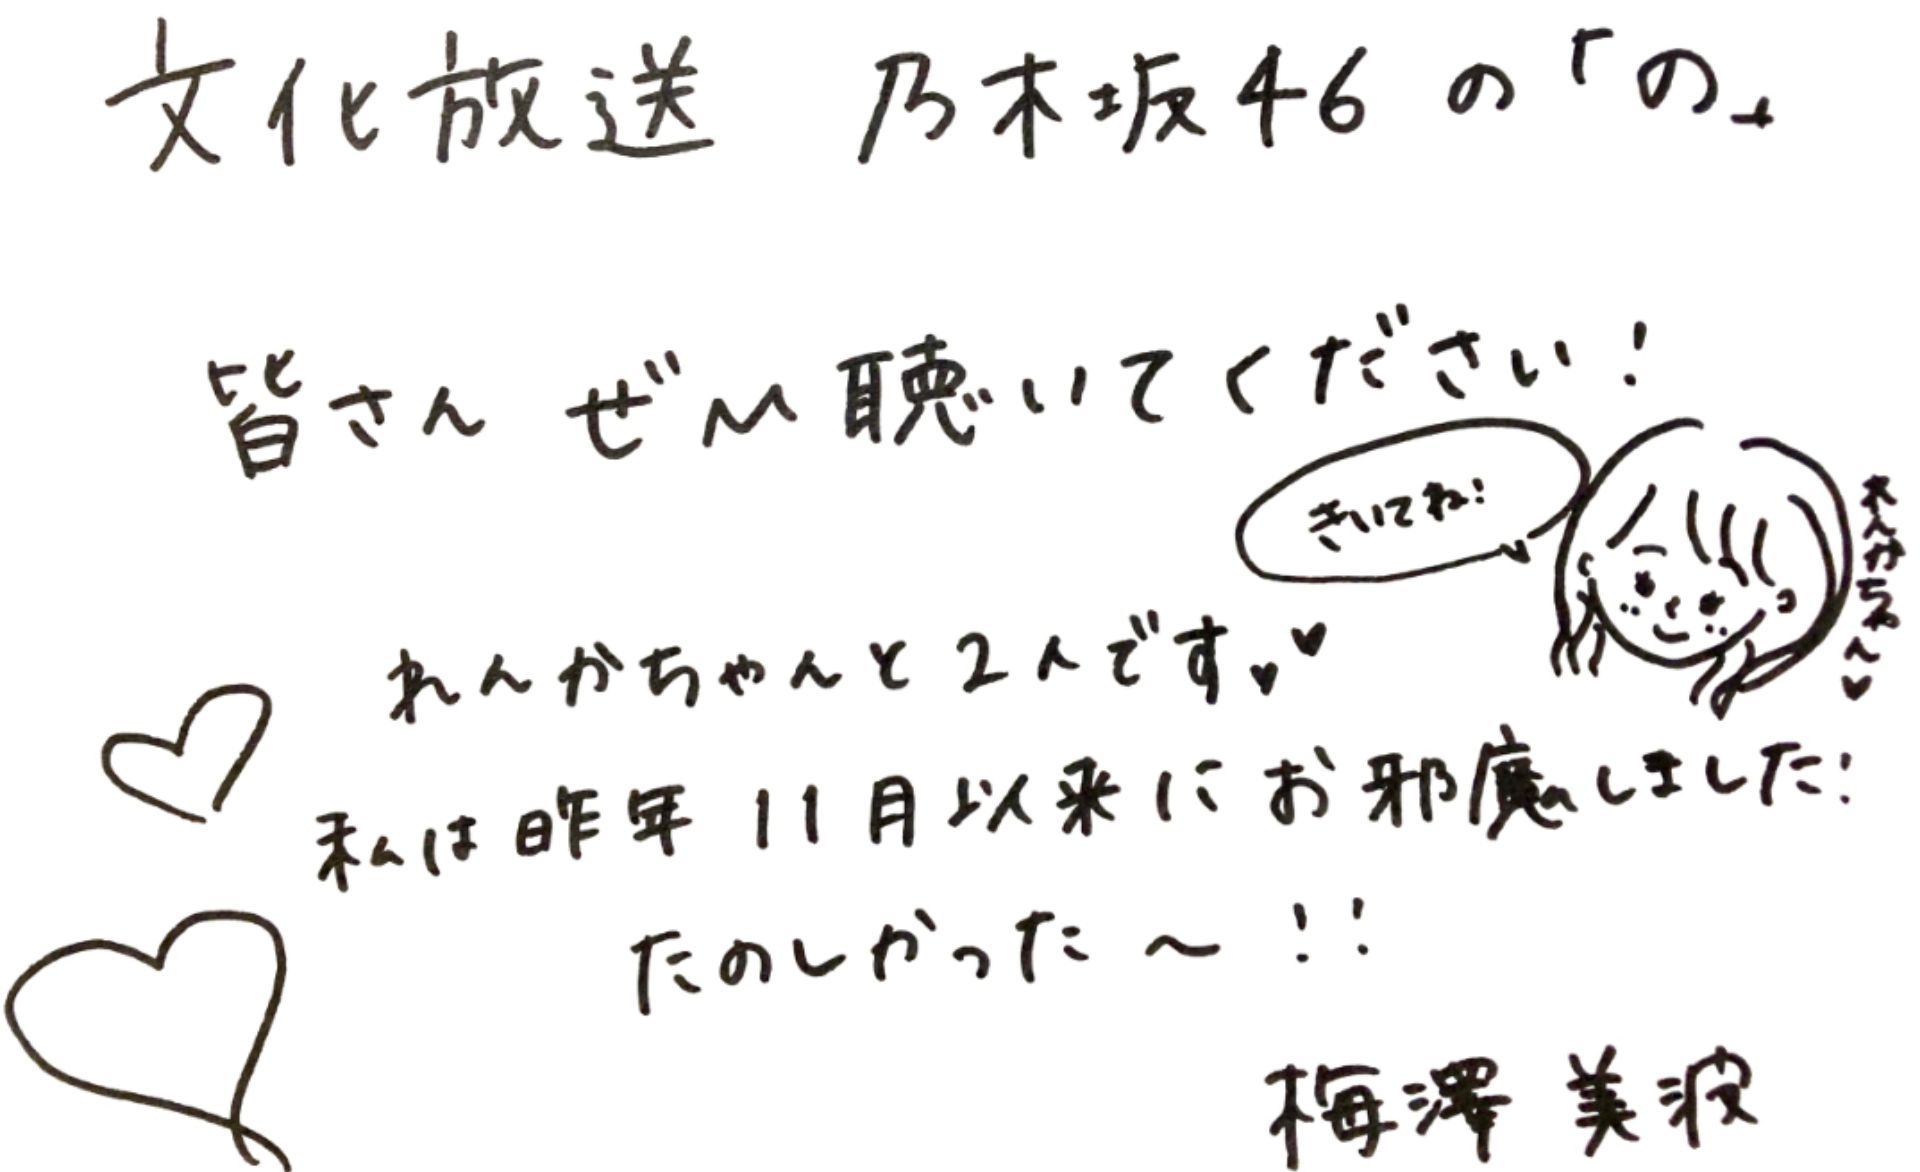 文化放送 乃木坂46の「の」
皆さん ぜひ聴いてください!
きいてね!
れんかちゃん♥
れんかちゃんと2人です♥♥
私は昨年11月以来にお邪魔しました!
たのしかった〜!!
梅澤 美波